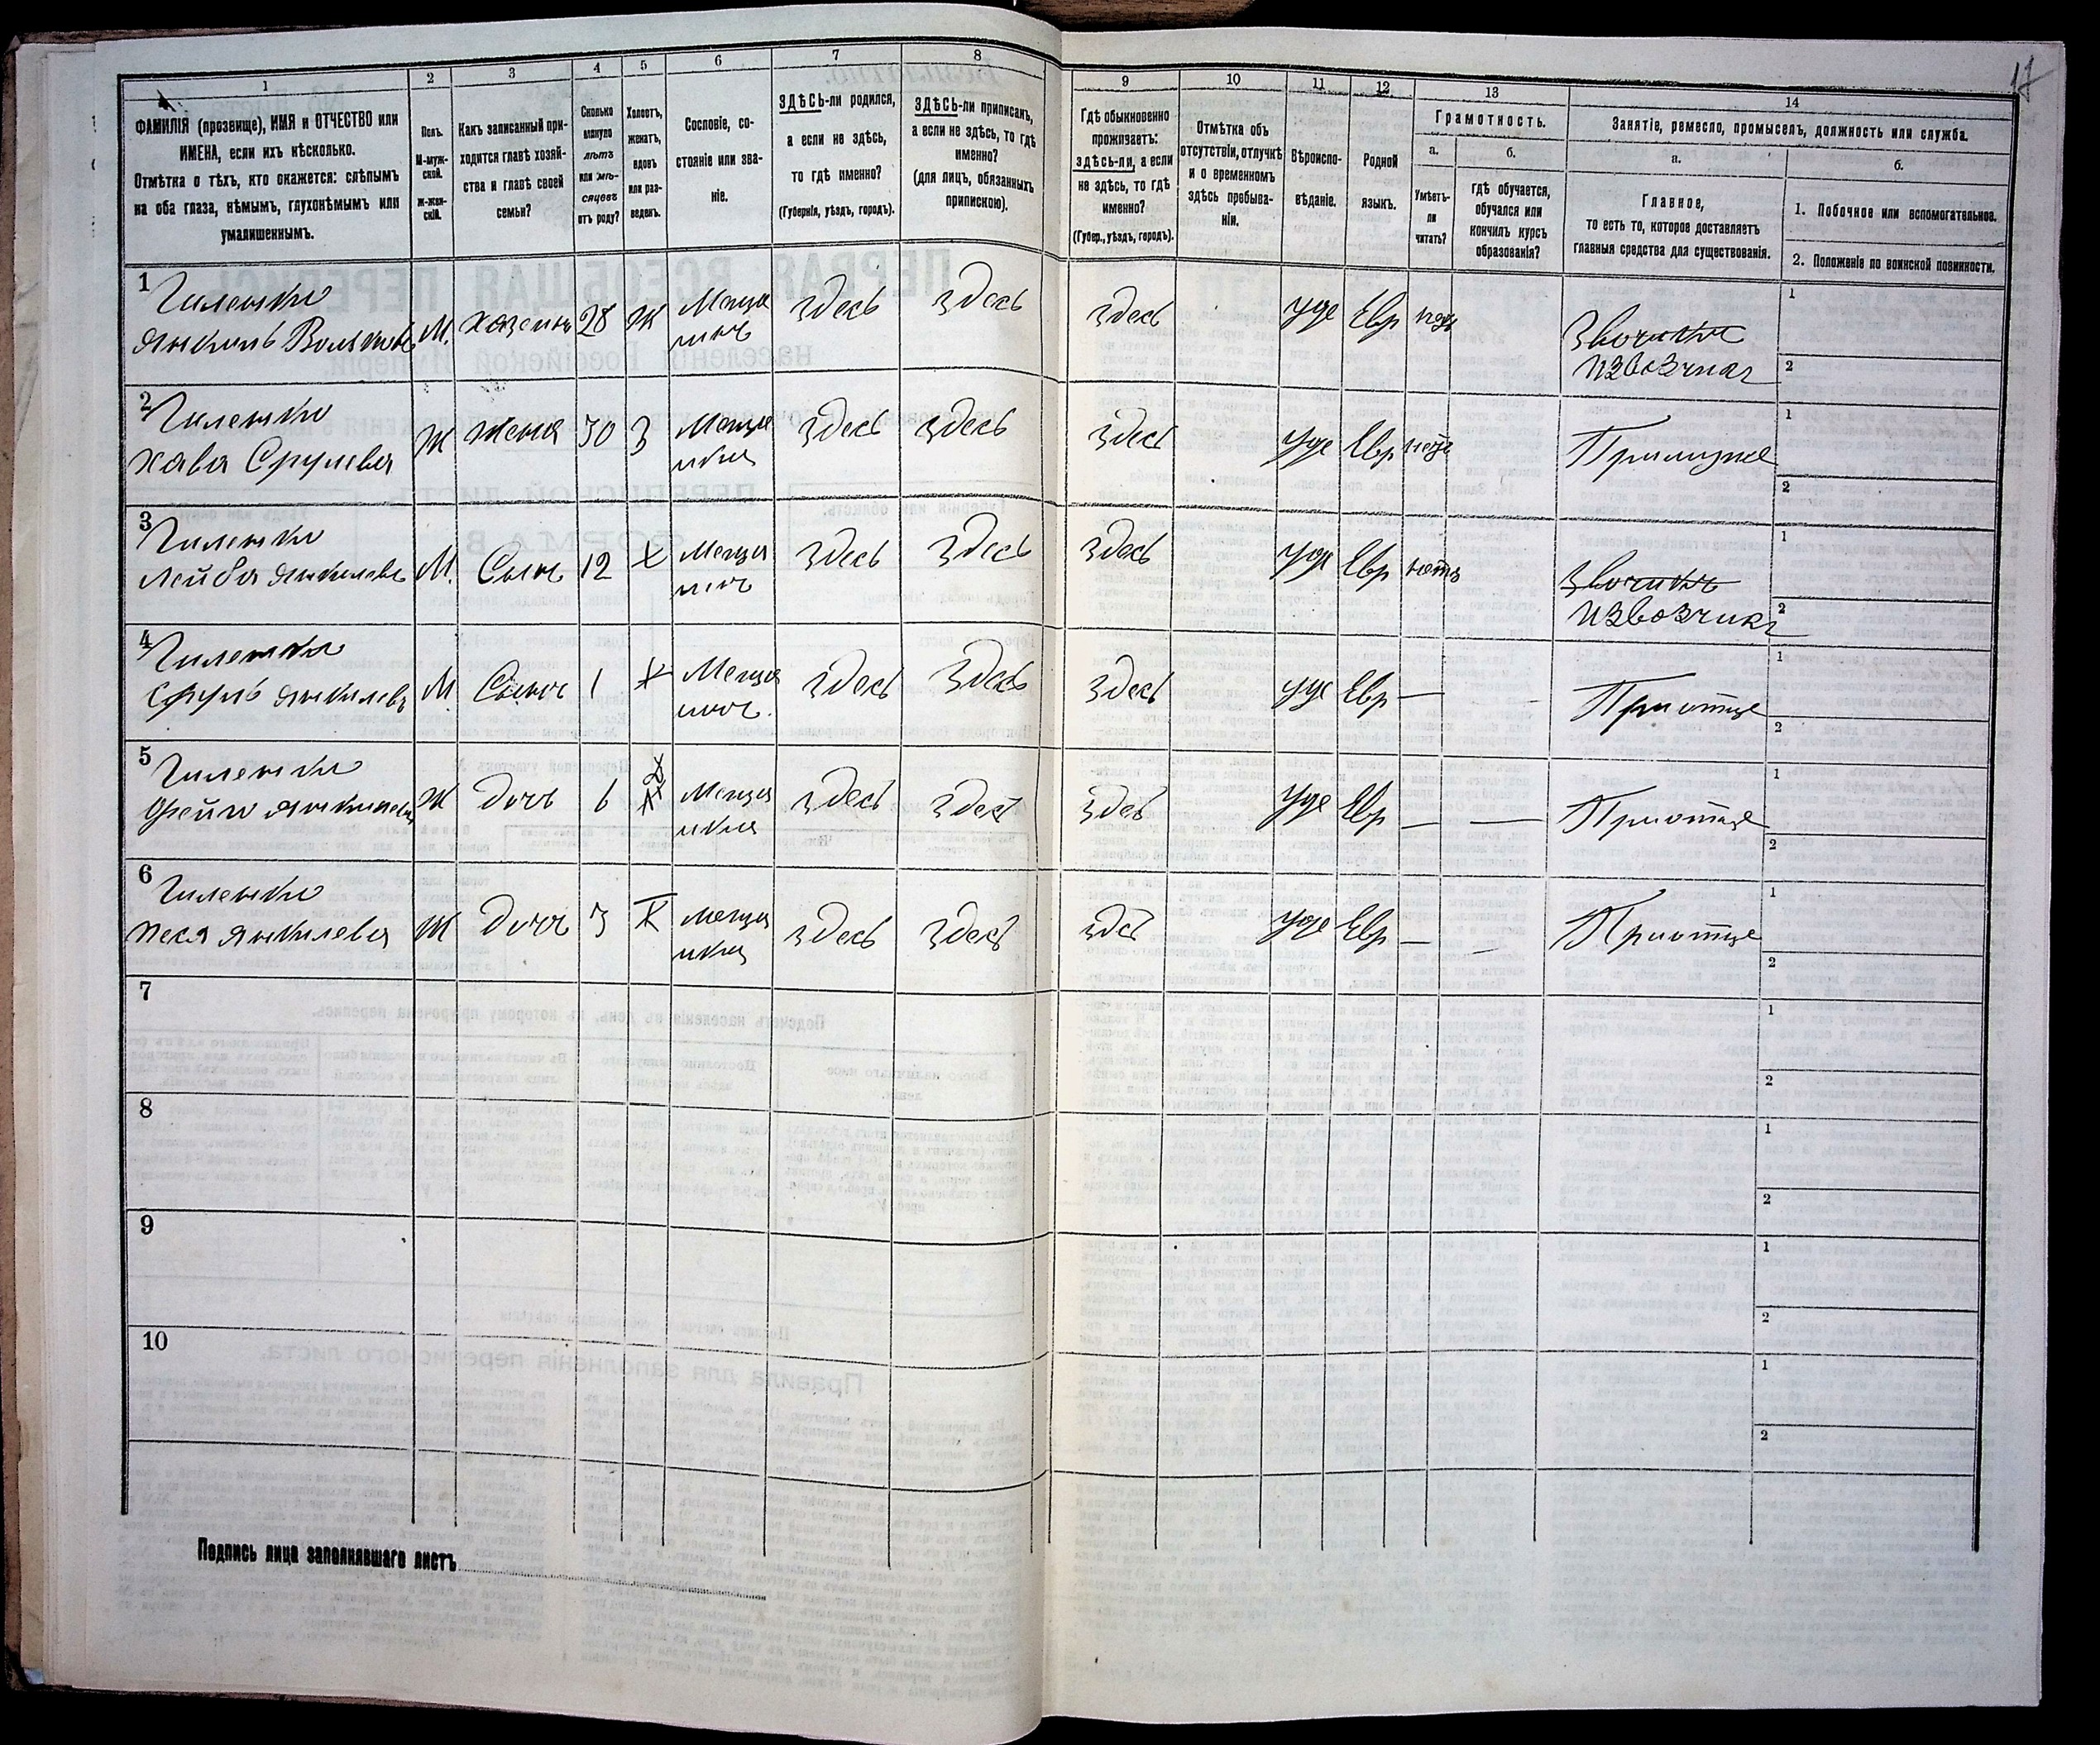 1 2 3 4 5 6 7 8
ФАМИЛІЯ (прозвище), ИМЯ и ОТЧЕСТВО или
ИМЕНА, если ихъ нѣсколько.
Отмѣтка о тѣхъ, кто окажется: слѣпымъ
на оба глаза, нѣмымъ, глухонѣмымъ или
умалишеннымъ.
Полъ.
М-муж-
ской.
Ж-жен-
скій.
Какъ записанный при-
ходится главѣ хозяй-
ства и главѣ своей
семьи?
Сколько
минуло
лѣтъ
или мѣ-
сяцевъ
отъ роду?
Холостъ,
женатъ,
вдовъ
или раз-
веденъ.
Сословіе, со-
стояніе или зва-
ніе.
ЗДѢСЬ-ли родился,
а если не здѣсь,
то гдѣ именно?
(Губернія, уѣздъ, городъ).
ЗДѢСЬ-ли приписанъ,
а если не здѣсь, то гдѣ
именно?
(для лицъ, обязанныхъ
припискою).
9 10 11 12 13 14
17
Гдѣ обыкновенно
проживаетъ:
здѣсь-ли, а если
не здѣсь, то гдѣ
именно?
(Губер., уѣздъ, городъ).
Отмѣтка объ
отсутствіи, отлучкѣ
и о временномъ
здѣсь пребыва-
ніи.
Вѣроиспо-
вѣданіе.
Родной
языкъ.
Грамотность.
а.
Умѣетъ-
ли
читать?
б.
гдѣ обучается,
обучался или
кончилъ курсъ
образованія?
Занятіе, ремесло, промыселъ, должность или служба.
а.
Главное,
то есть то, которое доставляетъ
главныя средства для существованія.
б.
1. Побочное или вспомогательное.
2. Положеніе по воинской повинности.
1 Гилешки М. хозяинъ 28 Ж Меща здесь здесь здесь Іуде Евр нетъ 1
Янкиль нинъ извозчикъ 2
2 Гилешки Ж жена 30 З Меща здесь здесь здесь Іуде Евр нетъ Примуже 1
Хава Срулева нка 2
3 Гилешки М. Сынъ 12 Х Меща здесь здесь здесь Іуде Евр нетъ 1
Лейба Янкилевъ нинъ извозчикъ 2
4 Гилешки М. Сынъ 1 Х Меща здесь здесь здесь Іуде Евр — — Приотце 1
Сруль Янкилевъ нинъ. 2
5 Гилешки Ж дочь 6 Меща здесь здесь здесь Іуде Евр — — Приотце 1
Янкилева нка 2
6 Гилешки Ж дочь 3 Меща здесь здесь здесь Іуде Евр — — Приотце 1
Песя Янкилева нка 2
7 1
2
8 1
2
9 1
2
10 1
2
Подпись лица заполнявшаго листъ